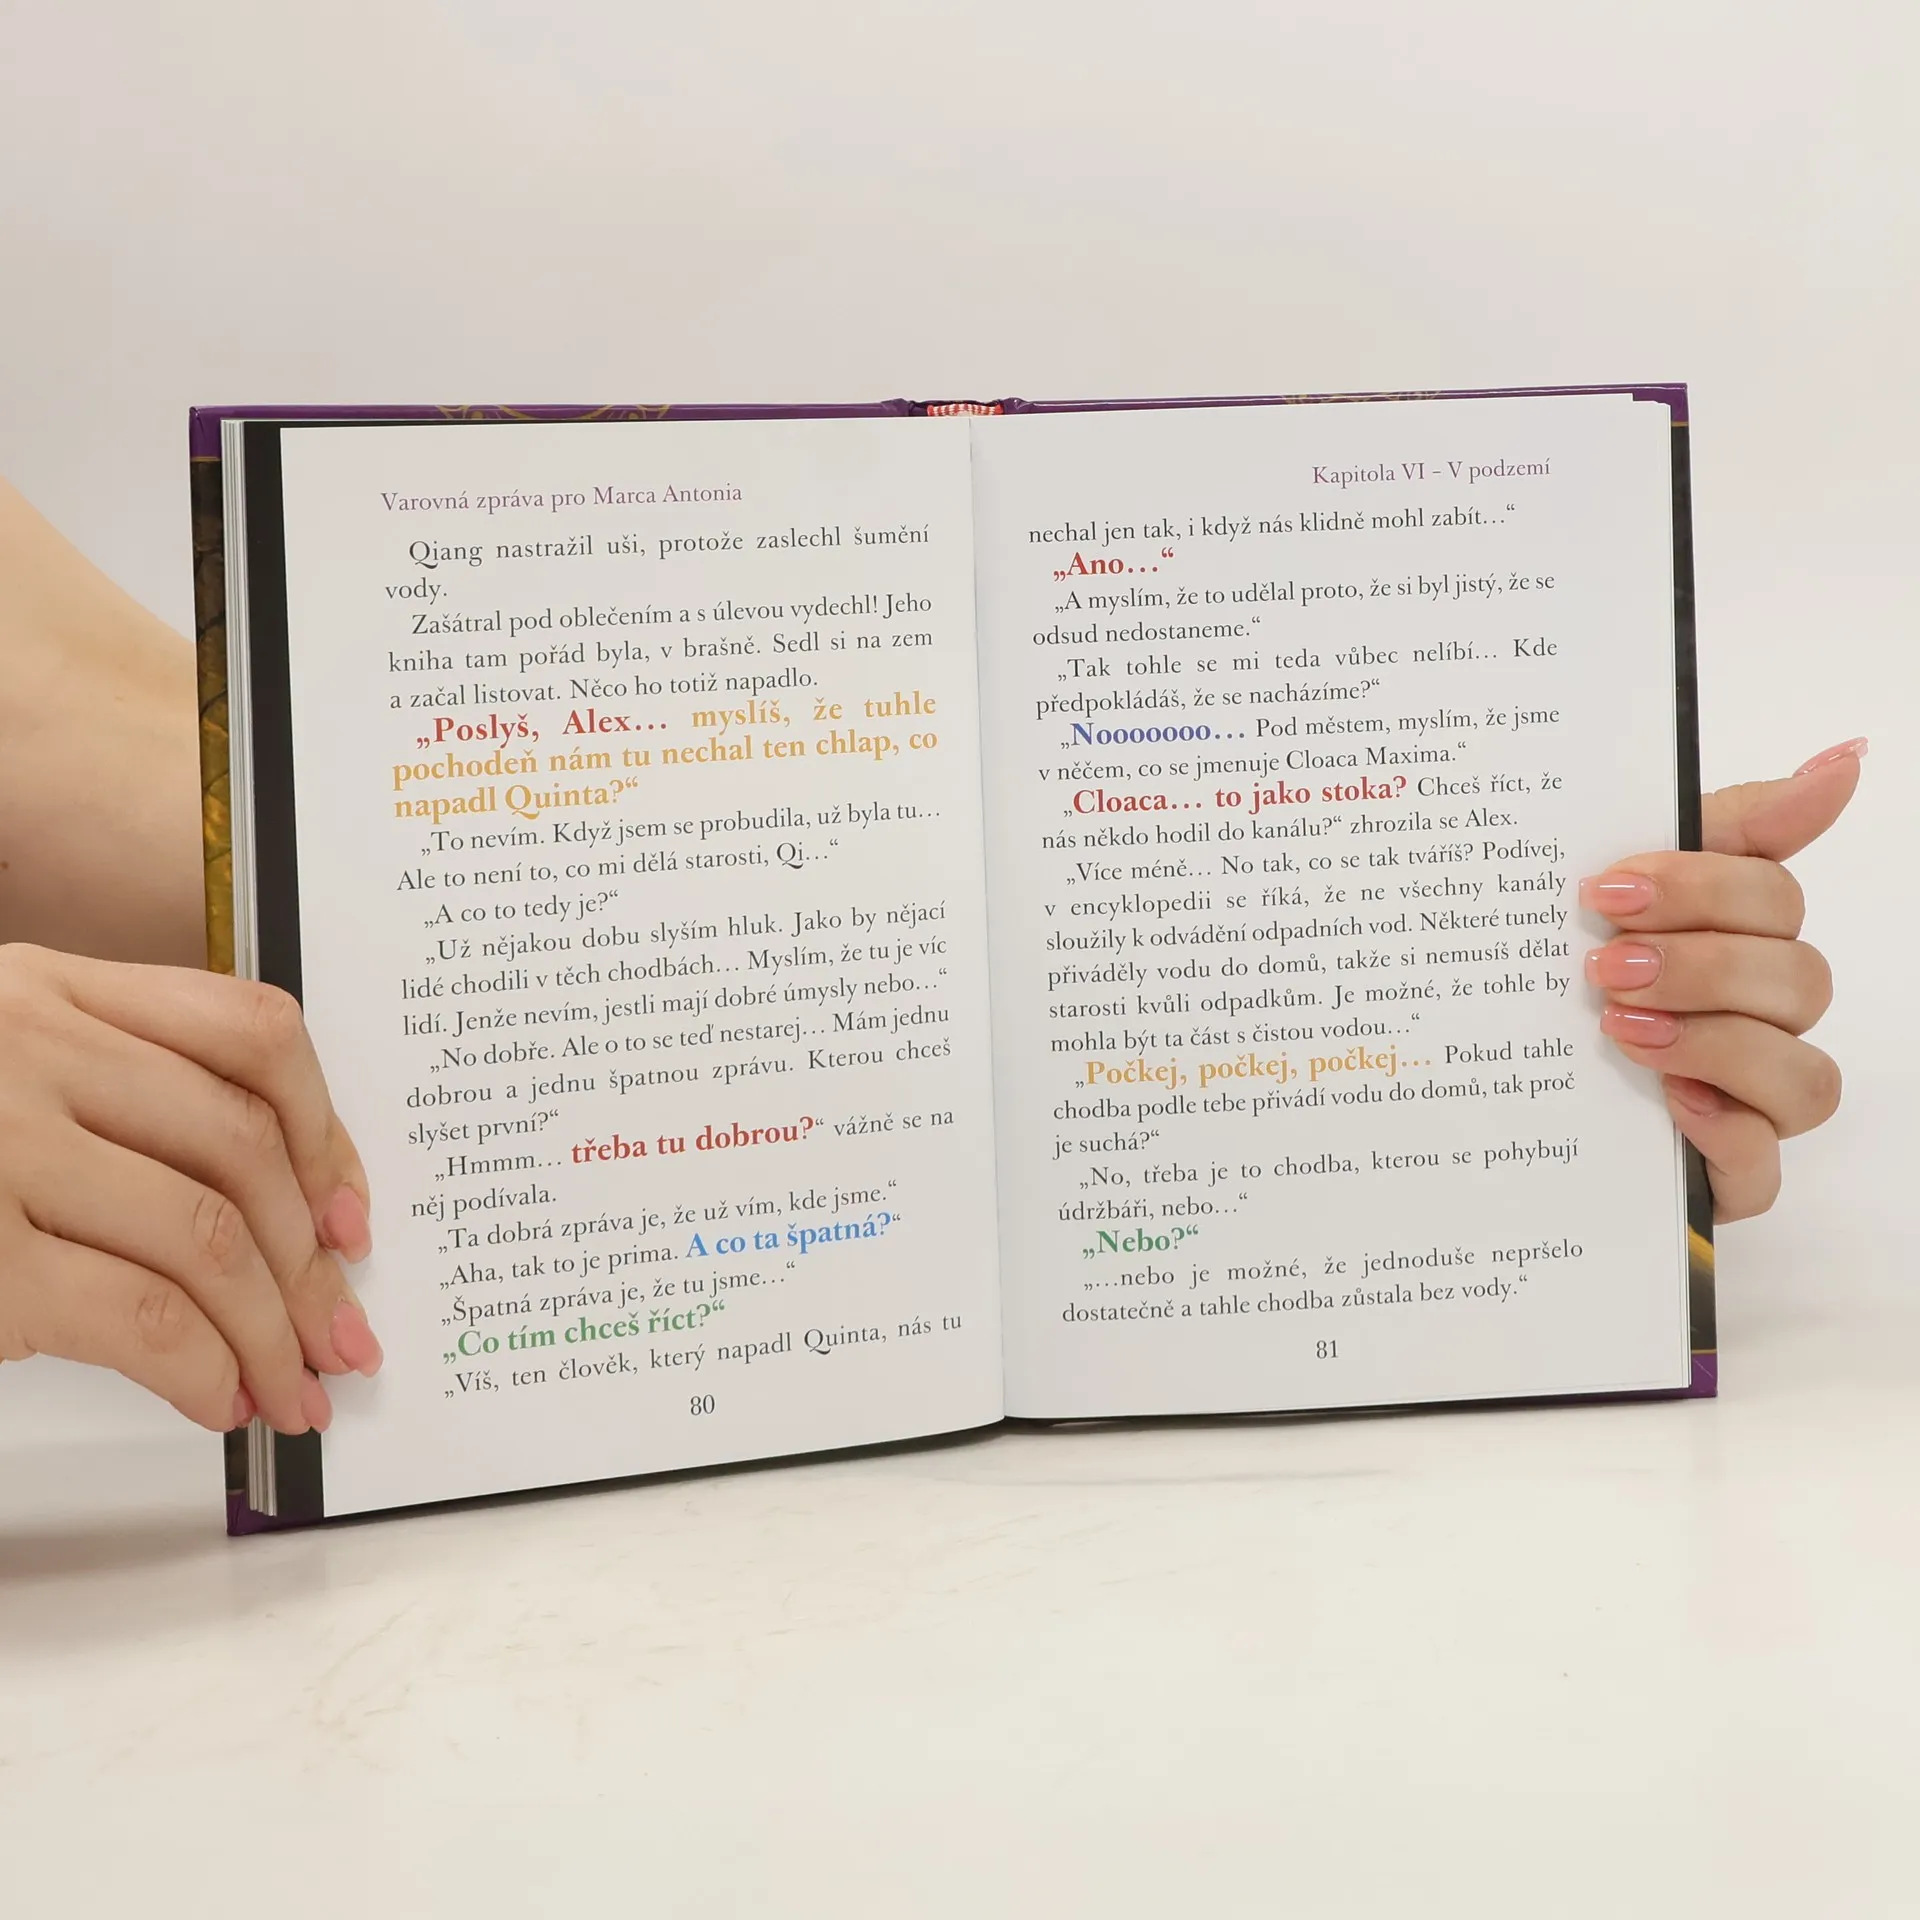 Varovná zpráva pro Marca Antonia
Qiang nastražil uši, protože zaslechl šumění
vody.
Zašátral pod oblečením a s úlevou vydechl! Jeho
kniha tam pořád byla, v brašně. Sedl si na zem
a začal listovat. Něco ho totiž napadlo.
„Poslyš, Alex… myslíš, že tuhle
pochodeň nám tu nechal ten chlap, co
napadl Quinta?“
„To nevím. Když jsem se probudila, už byla tu…
Ale to není to, co mi dělá starosti, Qi…“
„A co to tedy je?“
„Už nějakou dobu slyším hluk. Jako by nějací
lidé chodili v těch chodbách… Myslím, že tu je víc
lidí. Jenže nevím, jestli mají dobré úmysly nebo…“
„No dobře. Ale o to se teď nestarej… Mám jednu
dobrou a jednu špatnou zprávu. Kterou chceš
slyšet první?“
„Hmmm… třeba tu dobrou?“ vážně se na
něj podívala.
„Ta dobrá zpráva je, že už vím, kde jsme.“
„Aha, tak to je prima. A co ta špatná?“
„Špatná zpráva je, že tu jsme…“
„Co tím chceš říct?“
„Víš, ten člověk, který napadl Quinta, nás tu
80
Kapitola VI – V podzemí
nechal jen tak, i když nás klidně mohl zabít…“
„Ano…“
„A myslím, že to udělal proto, že si byl jistý, že se
odsud nedostaneme.“
„Tak tohle se mi teda vůbec nelíbí… Kde
předpokládáš, že se nacházíme?“
„Nooooooo… Pod městem, myslím, že jsme
v něčem, co se jmenuje Cloaca Maxima.“
„Cloaca… to jako stoka? Chceš říct, že
nás někdo hodil do kanálu?“ zhrozila se Alex.
„Více méně… No tak, co se tak tváříš? Podívej,
v encyklopedii se říká, že ne všechny kanály
sloužily k odvádění odpadních vod. Některé tunely
přiváděly vodu do domů, takže si nemusíš dělat
starosti kvůli odpadkům. Je možné, že tohle by
mohla být ta část s čistou vodou…“
„Počkej, počkej, počkej… Pokud tahle
chodba podle tebe přivádí vodu do domů, tak proč
je suchá?“
„No, třeba je to chodba, kterou se pohybují
údržbáři, nebo…“
„Nebo?“
„…nebo je možné, že jednoduše nepršelo
dostatečně a tahle chodba zůstala bez vody.“
81